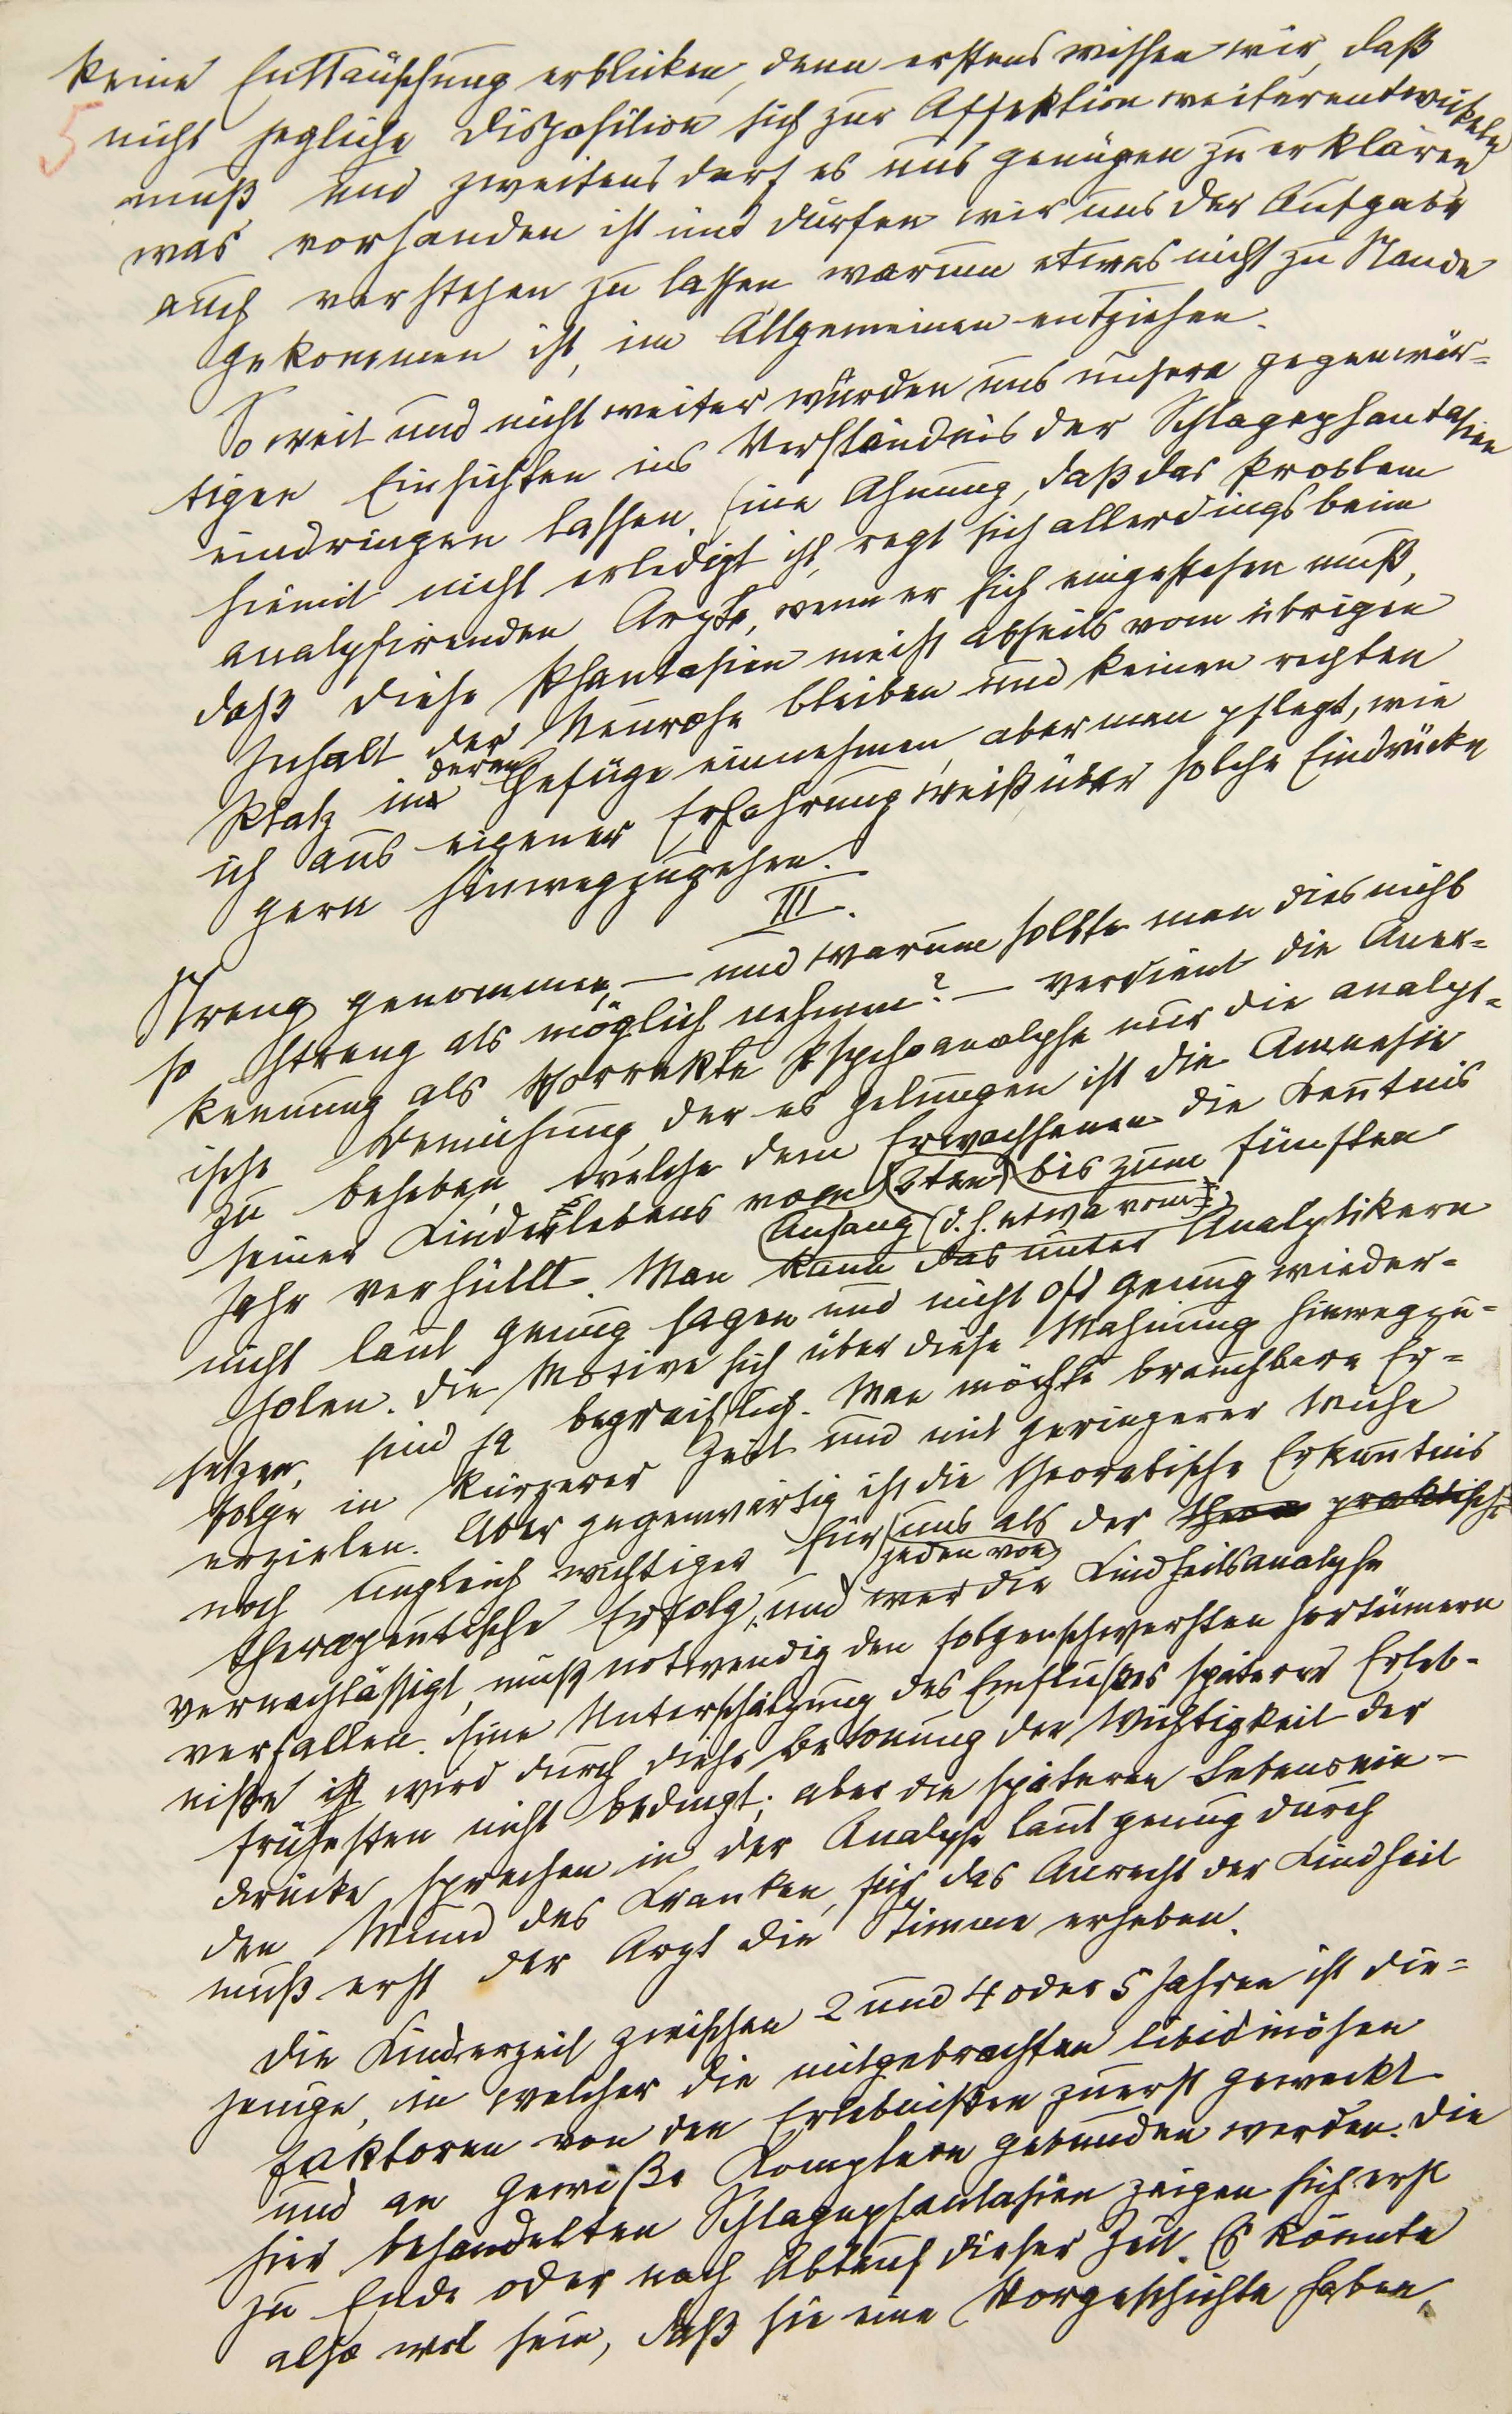 keine Enttäuschung erblicken, denn erstens wissen wir, daß
5 nicht jegliche Disposition sich zur Affektion weiterentwickeln
muß und zweitens darf es uns genügen zu erklären
was vorhanden ist und dürfen wir uns der Aufgabe
auch verstehen zu lassen warum etwas nicht zu Stande
gekommen ist, im Allgemeinen entziehen.
Soweit und nicht weiter würden uns unsere gegenwär=
tigen Einsichten ins Verständnis der Schlagephantasien
eindringen lassen. Eine Ahnung, daß das Problem
hiemit nicht erledigt ist, regt sich allerdings beim
analysirenden Arzte, wenn er sich eingestehen muß,
daß diese Phantasien meist abseits vom übrigen
Inhalt der Neurose bleiben und keinen rechten
Platz in deren Gefüge einnehmen, aber man pflegt, wie
ich aus eigener Erfahrung weiß über solche Eindrücke
gern hinwegzugehen.
III.
Streng genommen, – und warum sollte man dies nicht
so streng als möglich nehmen? – verdient die Aner=
kennung als korrekte Psychoanalyse nur die analyt=
ische Bemühung, der es gelungen ist die Amnesie
zu beheben, welche dem Erwachsenen die Kenntnis
seines Kinderlebens vom 2ten bis zum fünften
Anfang (d. h. etwa vom
Jahr verhüllt. Man kann das unter Analytikern
nicht laut genug sagen und nicht oft genug wieder=
holen. Die Motive sich über diese Mahnung hinwegzu=
setzen, sind ja begreiflich. Man möchte brauchbare Er=
folge in kürzerer Zeit und mit geringerer Mühe
erzielen. Aber gegenwärtig ist die theoretische Erkenntnis
noch ungleich wichtiger für uns als der praktische
jeden von
therapeutische Erfolg, und wer die Kindheitsanalyse
vernachlässigt, muß notwendig den folgenschwersten Irrtümern
verfallen. Eine Unterschätzung des Einflußes späterer Erleb-
niße ist wird durch diese Betonung der Wichtigkeit der
frühesten nicht bedingt; aber die späteren Lebensein-
drücke sprechen in der Analyse laut genug durch
den Mund des Kranken, für das Anrecht der Kindheit
muß erst der Arzt die Stimme erheben.
Die Kinderzeit zwischen 2 und 4 oder 5 Jahren ist die=
jenige, in welcher die mitgebrachten libidinösen
Faktoren von den Erlebnißen zuerst geweckt
und an gewiße Komplexe gebunden werden. Die
hier behandelten Schlagephantasien zeigen sich erst
zu Ende oder nach Ablauf dieser Zeit. Es könnte
also wol sein, daß sie eine Vorgeschichte haben,